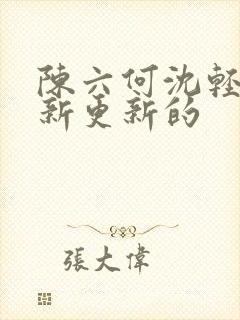 陳六何沈輕
新更新的
張大偉